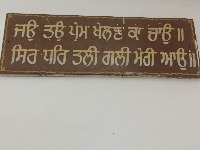 ਜਉ ਤਉ ਪ੍ਰੇਮ ਖੇਲਣ ਕਾ ਚਾਉ ॥
ਸਿਰ ਧਰਿ ਤਲੀ ਗਲੀ ਮੇਰੀ ਆਉ ॥